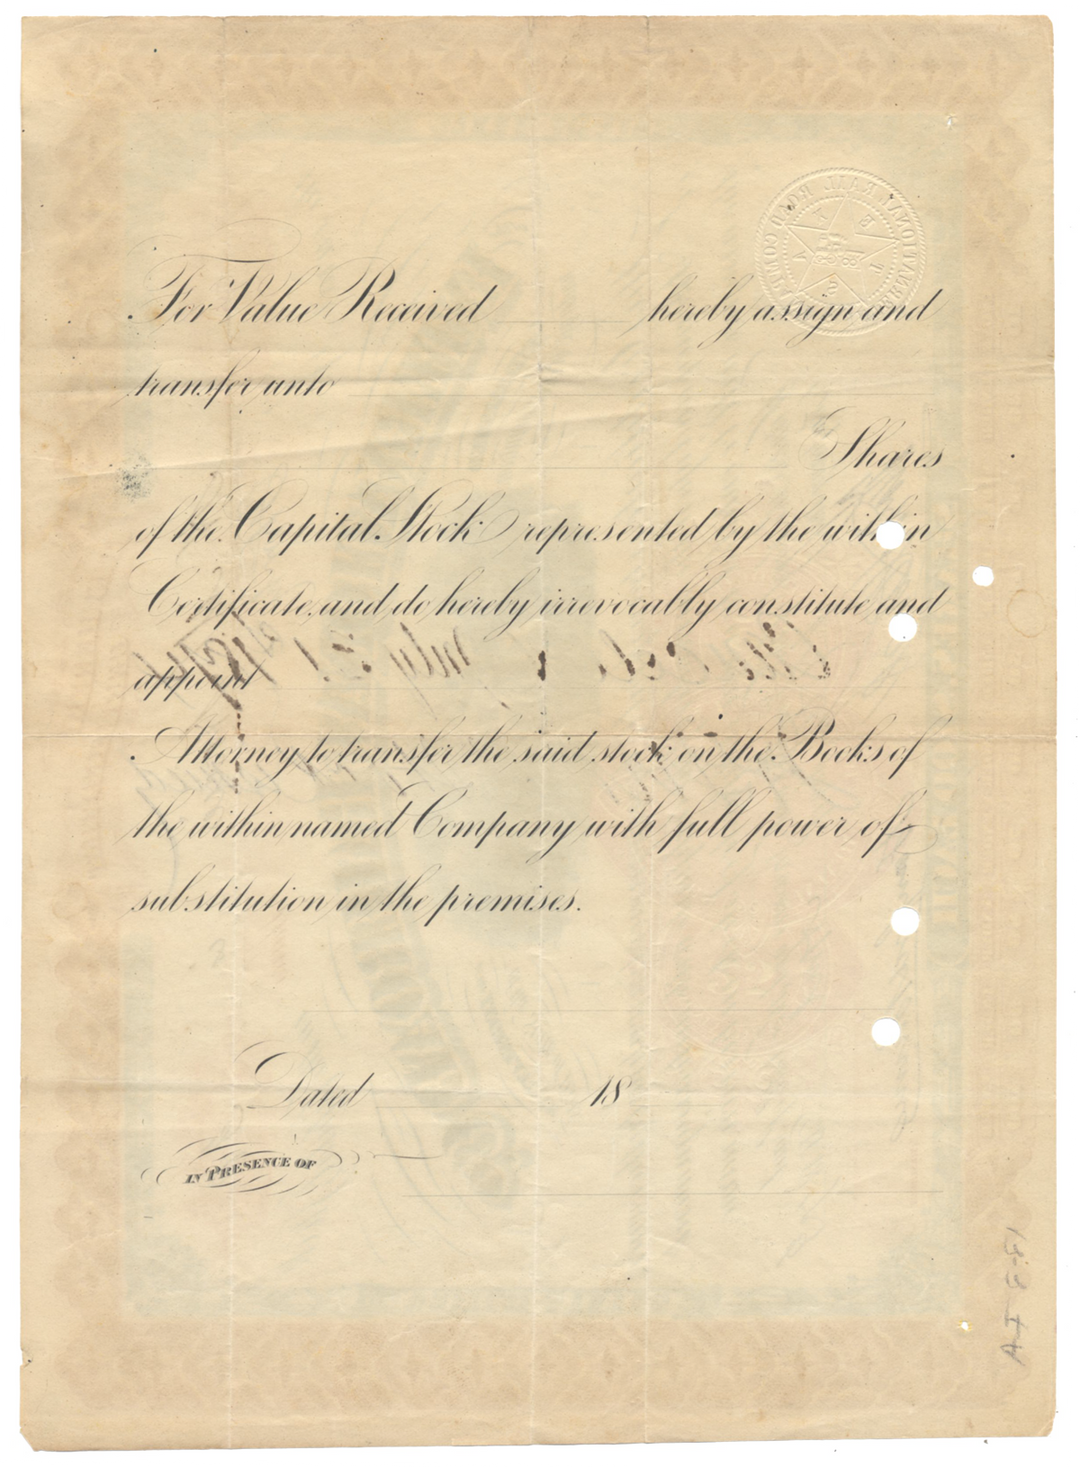 For Value Received hereby assign and
transfer unto
Shares
of the Capital Stock represented by the within
Certificate, and do hereby irrevocably constitute and
appoint
Attorney to transfer the said stock on the Books of
the within named Company with full power of
substitution in the premises.
Dated 18
IN PRESENCE OF